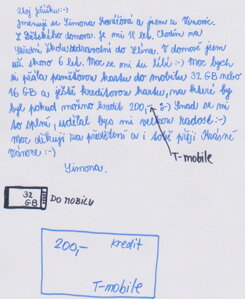 Ahoj ježíšku :-)
Jmenuji se Simona Kovářová a jsem z Vizovic.
Z Dětského domova. Je mi 18 let. Chodím na
Střední školu zdravotní do Zlína. V domově jsem
už skoro 6 let. Moc se mi tu líbí :-) Moc bych
si přála paměťovou kartu do mobilu 32 GB nebo
16 GB a ještě kreditovou kartu, na které by
byl pokud možno kredit 200,- :-) Snad se mi
to splní, udělal bys mi velkou radost :-)
Moc děkuji za přečtení a i tobě přeji krásné
Vánoce :-)
Simona.
T-mobile
32 GB
DO MOBILU
200,- kredit
T-mobile